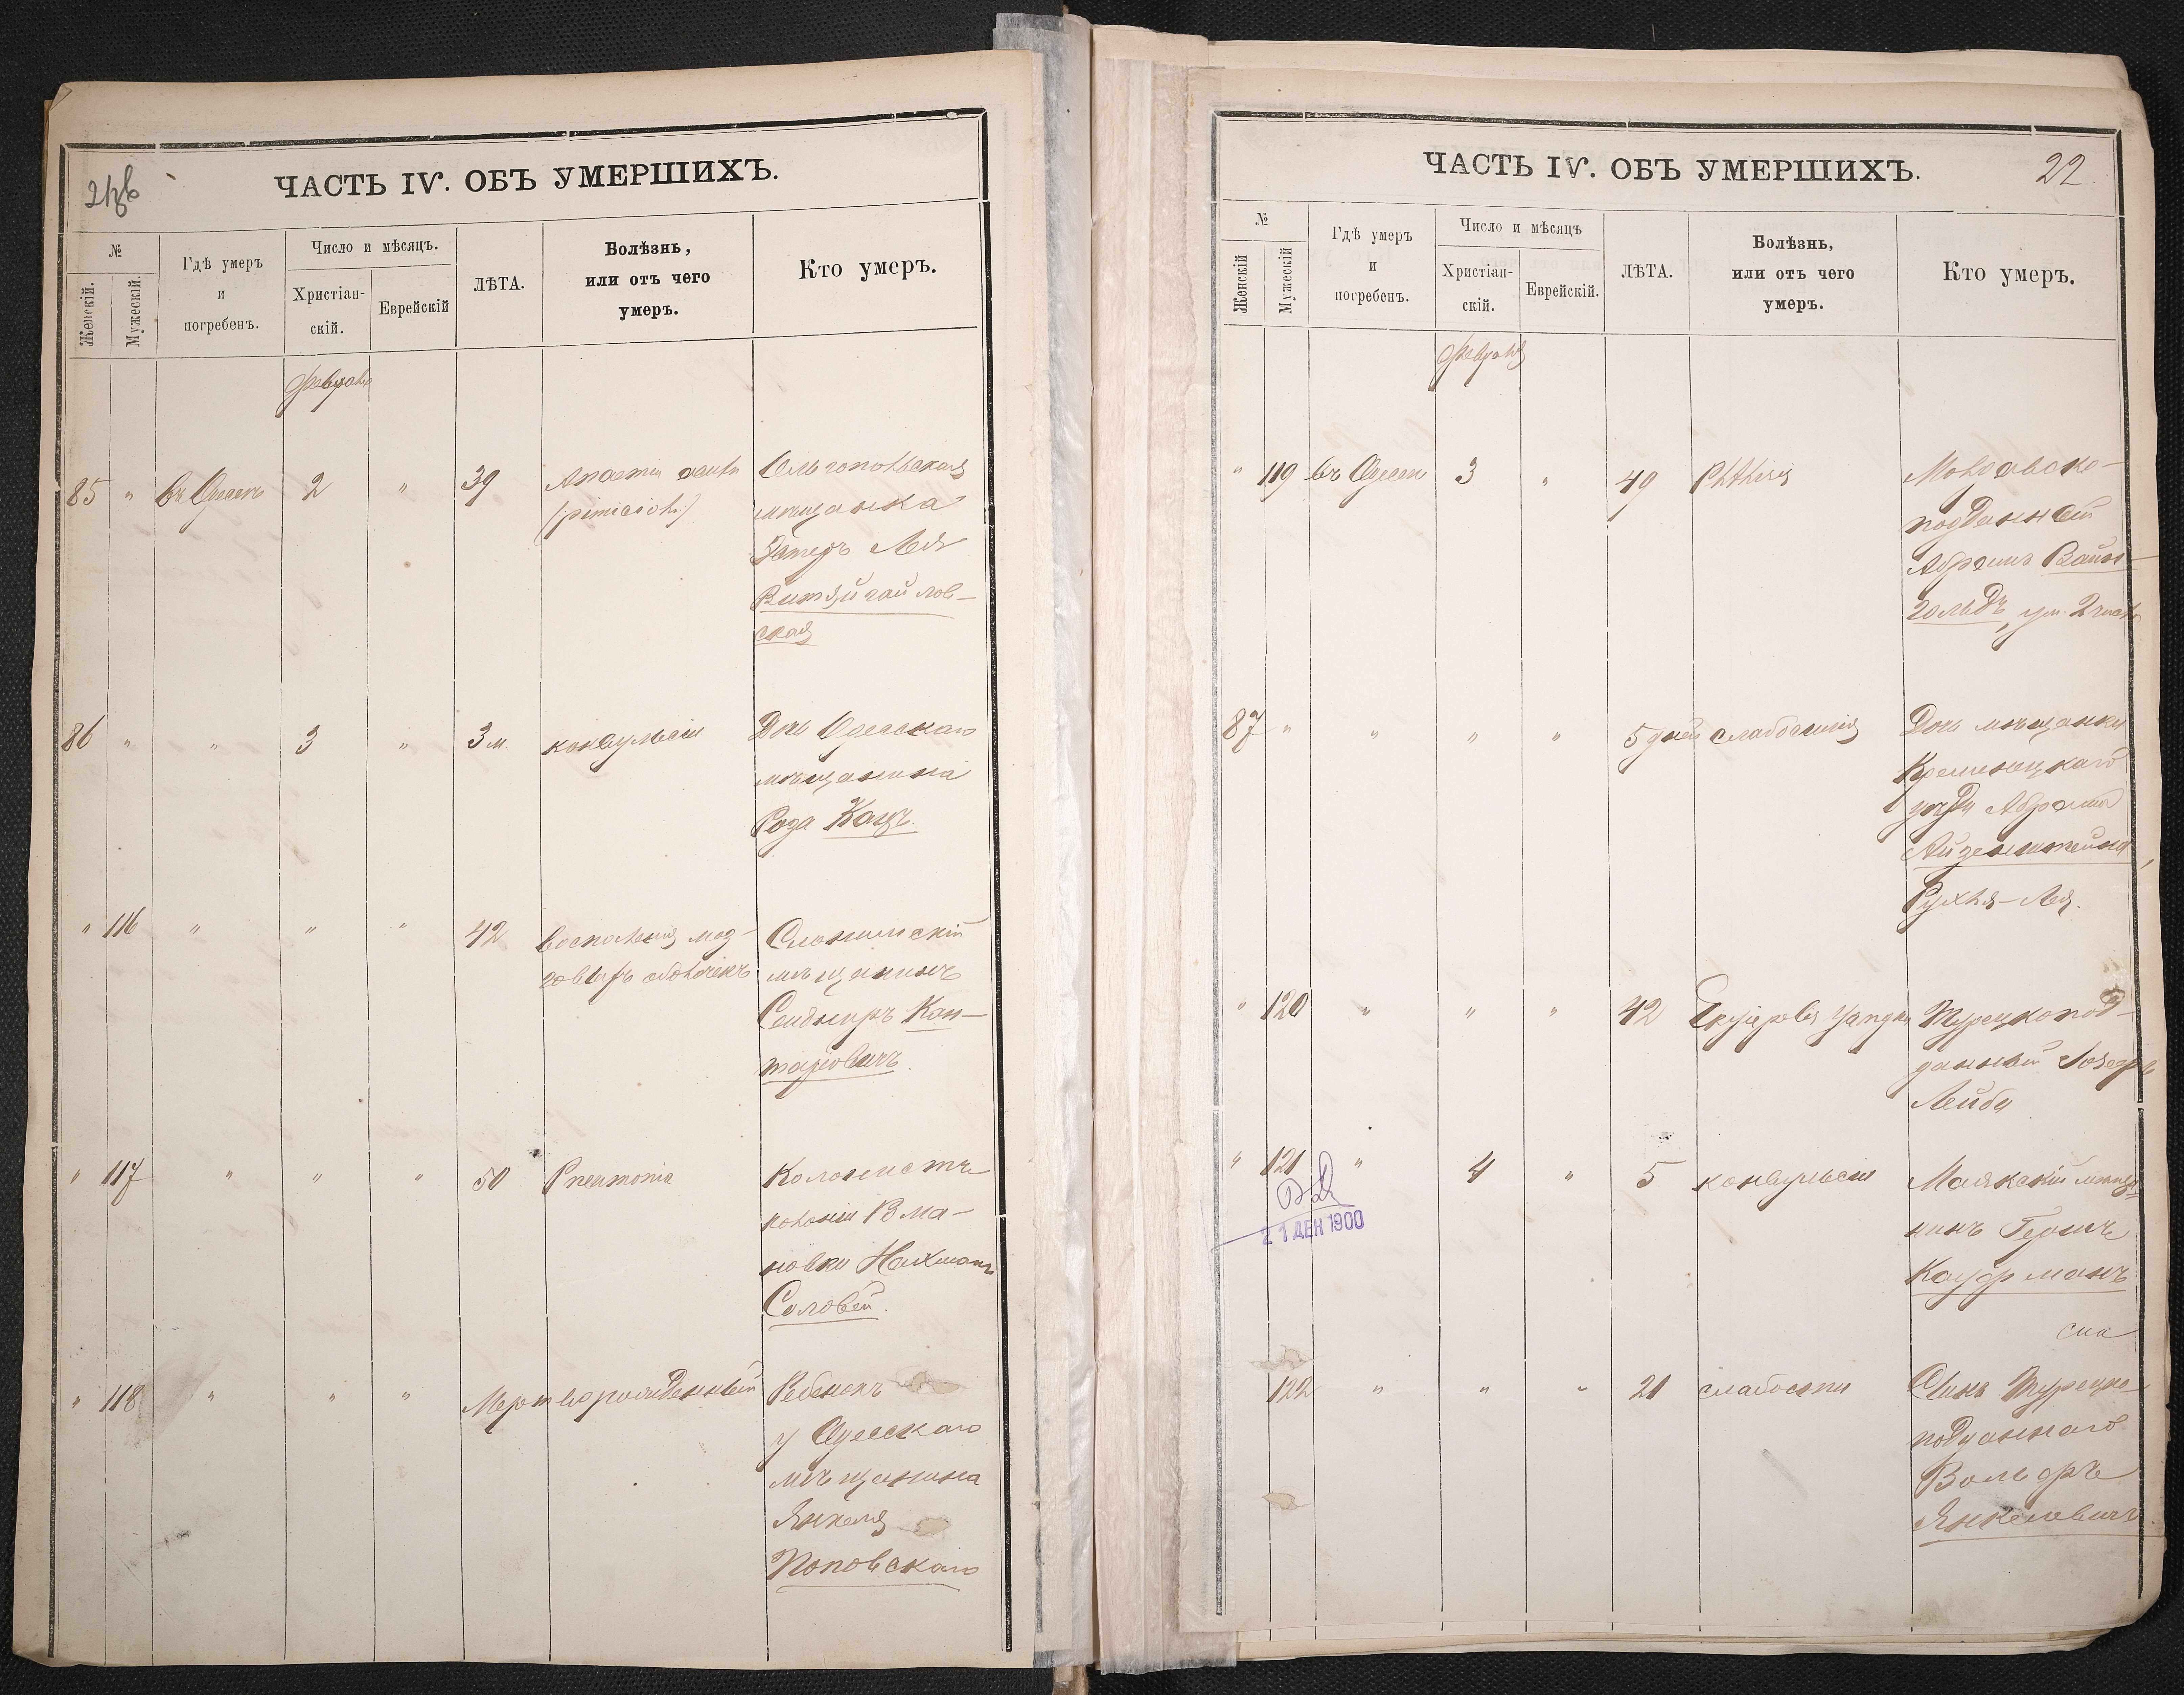 ЧАСТЬ IV. ОБЪ УМЕРШИХЪ.
№
Женскій.
Мужескій.
Гдѣ умеръ
и
погребенъ.
Число и мѣсяцъ.
Христіан-
скій.
Еврейскій
ЛѢТА.
Болѣзнь,
или отъ чего
умеръ.
Кто умеръ.
Февраль
85 " въ Одессѣ 2 " 39
Ольгопольская
мѣщанка
Лея
ская
86 " " 3 " 3 м. конвульсіи
Дочь Одесскаго
мѣщанина
Роза Кацъ.
" 116 " " " 42 воспаленія моз-
говыхъ оболочекъ
Слонимскій
мѣщанинъ
Кан-
таровичъ.
" 117 " " " 50 Pneumonia
Колонистъ
колоніи Рома-
новки Нахманъ
Соловей.
" 118 " " " Мертворожденный
Ребенокъ
у Одесскаго
мѣщанина
Янкеля
Поповскаго
ЧАСТЬ IV. ОБЪ УМЕРШИХЪ.
22
№
Женскій
Мужескій
Гдѣ умеръ
и
погребенъ.
Число и мѣсяцъ
Христіан-
скій.
Еврейскій.
ЛѢТА.
Болѣзнь,
или отъ чего
умеръ.
Кто умеръ.
Февраль
" 119 въ Одессѣ 3 " 49 Phthisis
Молдавско-
подданный
Абрамъ Вайн-
гольдъ, ум. 2 числа
87 " " " " 5 дней слабосилія
Дочь мѣщанки
Кременецкаго
уѣзда Абрама
Айзенштейна,
Рухля-Лея.
" 120 " " " 42
Турецкопод-
данный
Лейба
" 121 " 4 " 5 конвульсіи
Маякскій мѣща-
нинъ Гершъ
Кауфманъ
21 ДЕК 1900
122 " " " 21 слабости
Сынъ Турецко-
подданнаго
Вольфъ
Янкелевичъ.